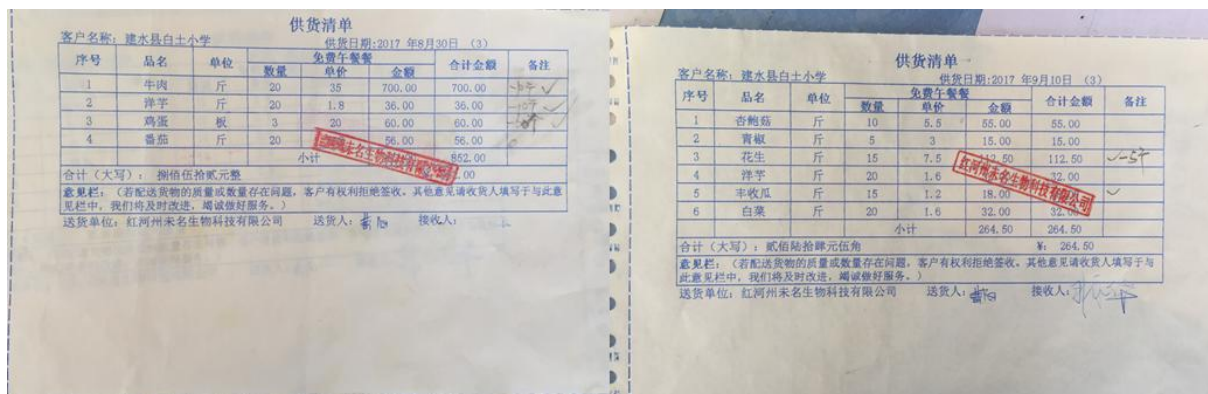 供货清单
客户名称：建水县白土小学 供货日期:2017 年8月30日 （3）
序号 品名 单位 免费午餐餐 合计金额 备注
数量 单价 金额
1 牛肉 斤 20 35 700.00 700.00
2 洋芋 斤 20 1.8 36.00 36.00
3 鸡蛋 板 3 20 60.00 60.00
4 番茄 斤 20 56.00 56.00
小计 852.00
合计（大写）： 捌佰伍拾贰元整
意见栏：（若配送货物的质量或数量存在问题，客户有权利拒绝签收。其他意见请收货人填写于与此意
见栏中，我们将及时改进，竭诚做好服务。）
送货单位：红河州未名生物科技有限公司 送货人： 接收人：
供货清单
客户名称：建水县白土小学 供货日期:2017 年9月10日 （3）
序号 品名 单位 免费午餐餐 合计金额 备注
数量 单价 金额
1 杏鲍菇 斤 10 5.5 55.00 55.00
2 青椒 斤 5 3 15.00 15.00
3 花生 斤 15 7.5 112.50 112.50
4 洋芋 斤 20 1.6 32.00
5 丰收瓜 斤 15 1.2 18.00
6 白菜 斤 20 1.6 32.00 32.00
小计 264.50 264.50
合计（大写）：贰佰陆拾肆元伍角 ¥: 264.50
意见栏：（若配送货物的质量或数量存在问题，客户有权利拒绝签收。其他意见请收货人填写于与
此意见栏中，我们将及时改进，竭诚做好服务。）
送货单位：红河州未名生物科技有限公司 送货人： 接收人：
红河州未名生物科技有限公司